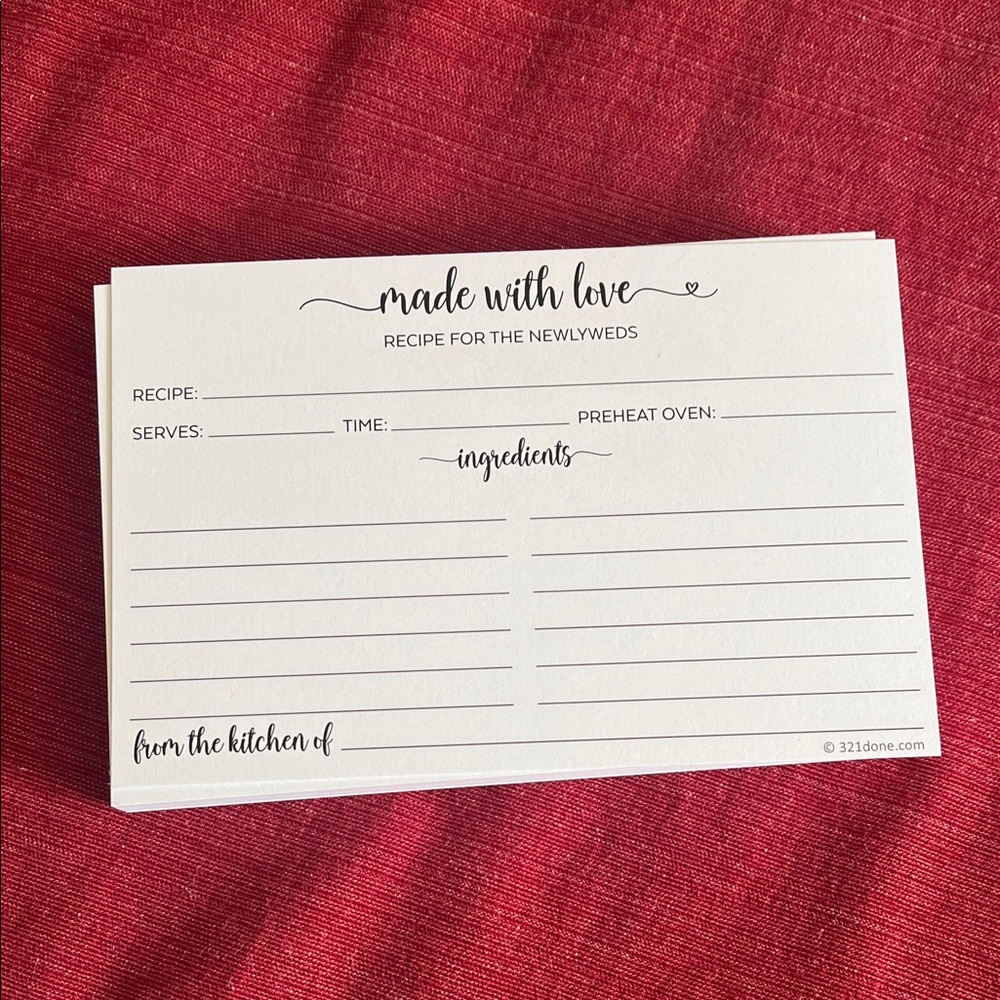 made with love
RECIPE FOR THE NEWLYWEDS
RECIPE:
SERVES: TIME: PREHEAT OVEN:
ingredients
from the kitchen of
© 321done.com